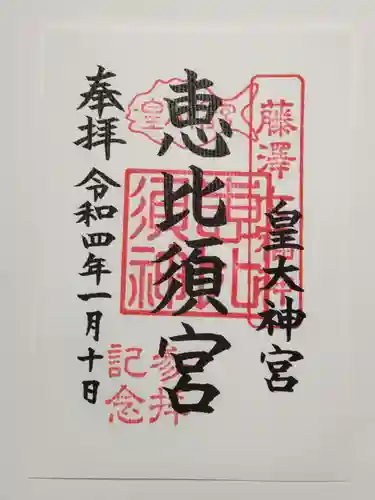 藤澤
皇大神宮
皇
宮
恵比須宮
須神
参拝
記念
奉拝
令和四年一月十日